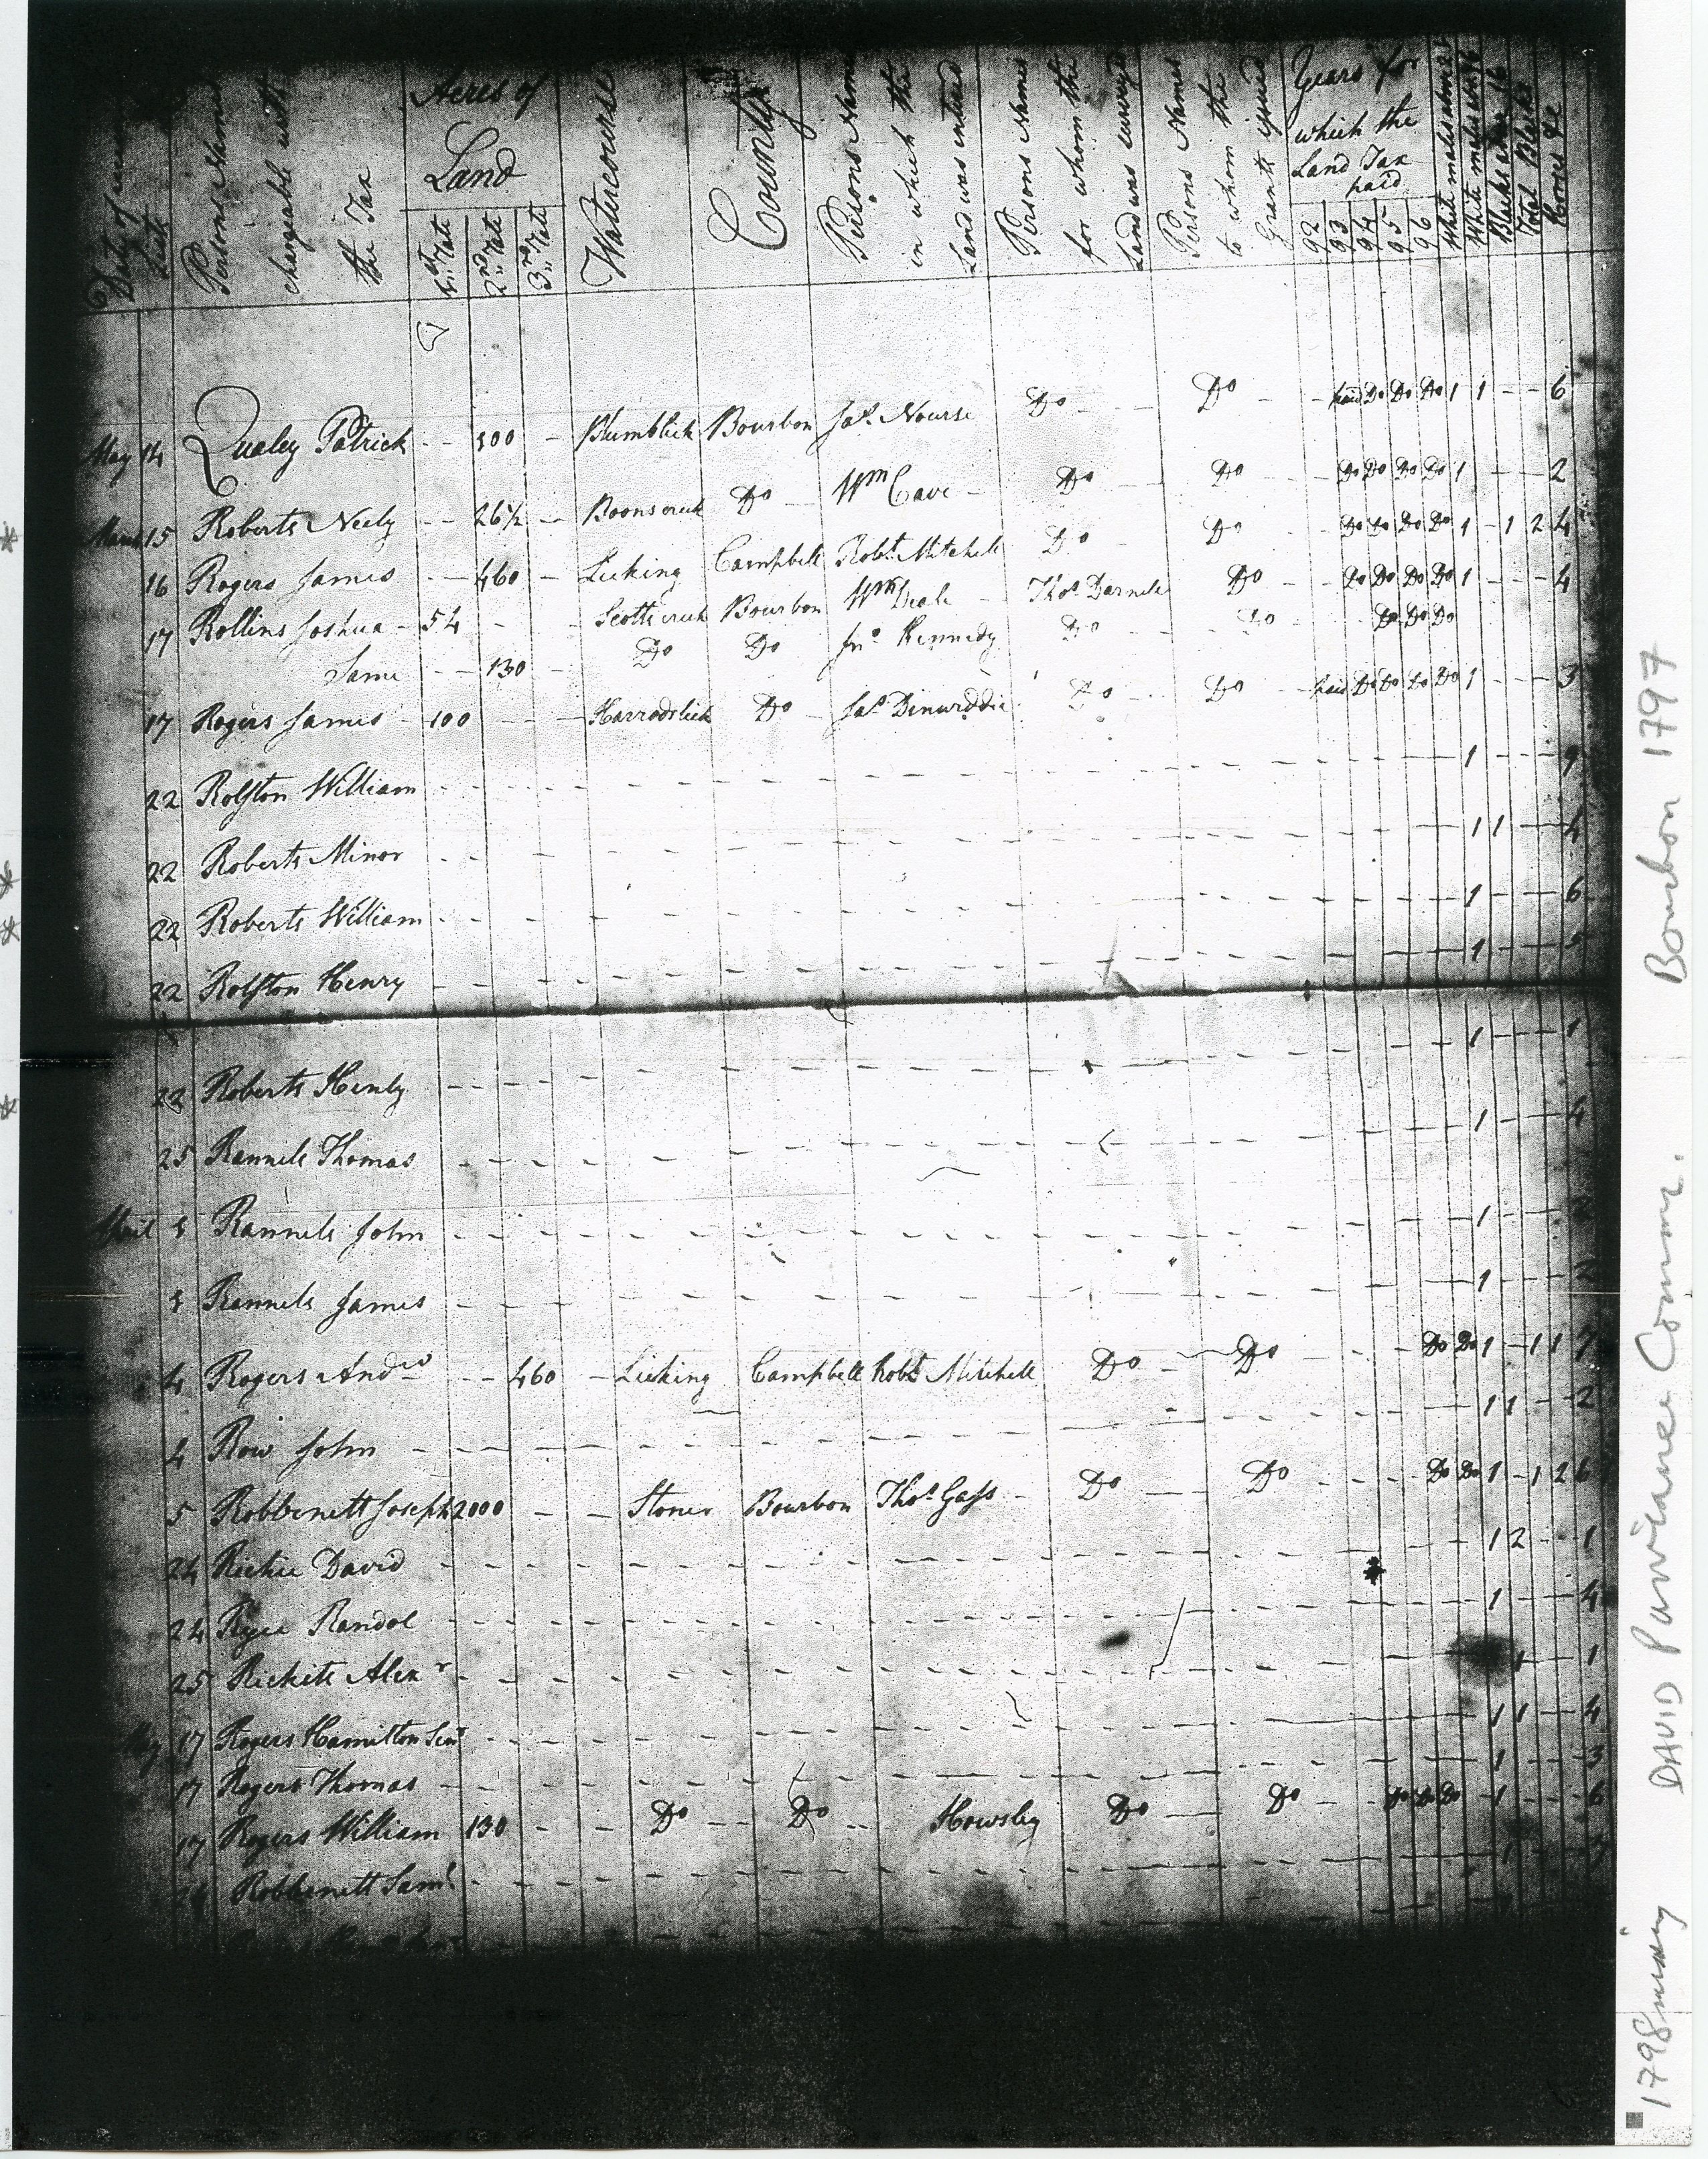 Persons Names chargeable with the Tax
Acres of Land
1st Rate
2nd Rate
3rd Rate
Watercourse
County
Persons Names in which the Land was entered
Persons Names for whom the Land was surveyed
Persons Names to whom the Grants issued
Years for which the Land Tax paid
92 93 94 95 96
White males above 21
White males above 16
Blacks above 16
Total Blacks
Horses &c
May 14 Qualey Patrick 100 Plumblick Bourbon Jas. Nourse Do Do paid Do Do Do 1 1 6
15 Roberts Neely 26½ Boons creek Do Wm Cave Do Do Do Do Do Do 1 2
16 Rogers James 460 Licking Campbell Robt. Mitchell Do Do Do Do Do Do 1 1 2 4
17 Rollins Joshua 54 Scotts creek Bourbon Wm Deale Thos. Darnele Do Do Do Do Do 1 4
Same 130 Do Do Jno. Kennedy Do Do Do Do Do
17 Rogers James 100 Harrodslick Do Jas. Dinwiddie Do Do paid Do Do Do Do 1 3
22 Rolston William 1 9
22 Roberts Minor 1 1 4
22 Roberts William 1 6
22 Rolston Henry 1 5
22 Roberts Henly 1 1
25 Rannels Thomas 1 4
April Rannels John 1 2
Rannels James 1 2
4 Rogers Andw 460 Licking Campbell Robt Mitchell Do Do Do Do 1 1 1 7
4 Row John 1 1 2
5 Robbenett Joseph 2000 Stoner Bourbon Thos. Gass Do Do Do Do 1 1 2 6
24 Richie David 1 2 1
24 Ryce Randol 1 4
25 Rickets Alexr 1 1
May 17 Rogers Hamilton Senr 1 1 4
17 Rogers Thomas 1 3
17 Rogers William 130 Do Do Howsley Do Do Do Do Do 1 6
Robbenett Saml. 1
1798 missing DAVID Purviance Comm. Bourbon 1797